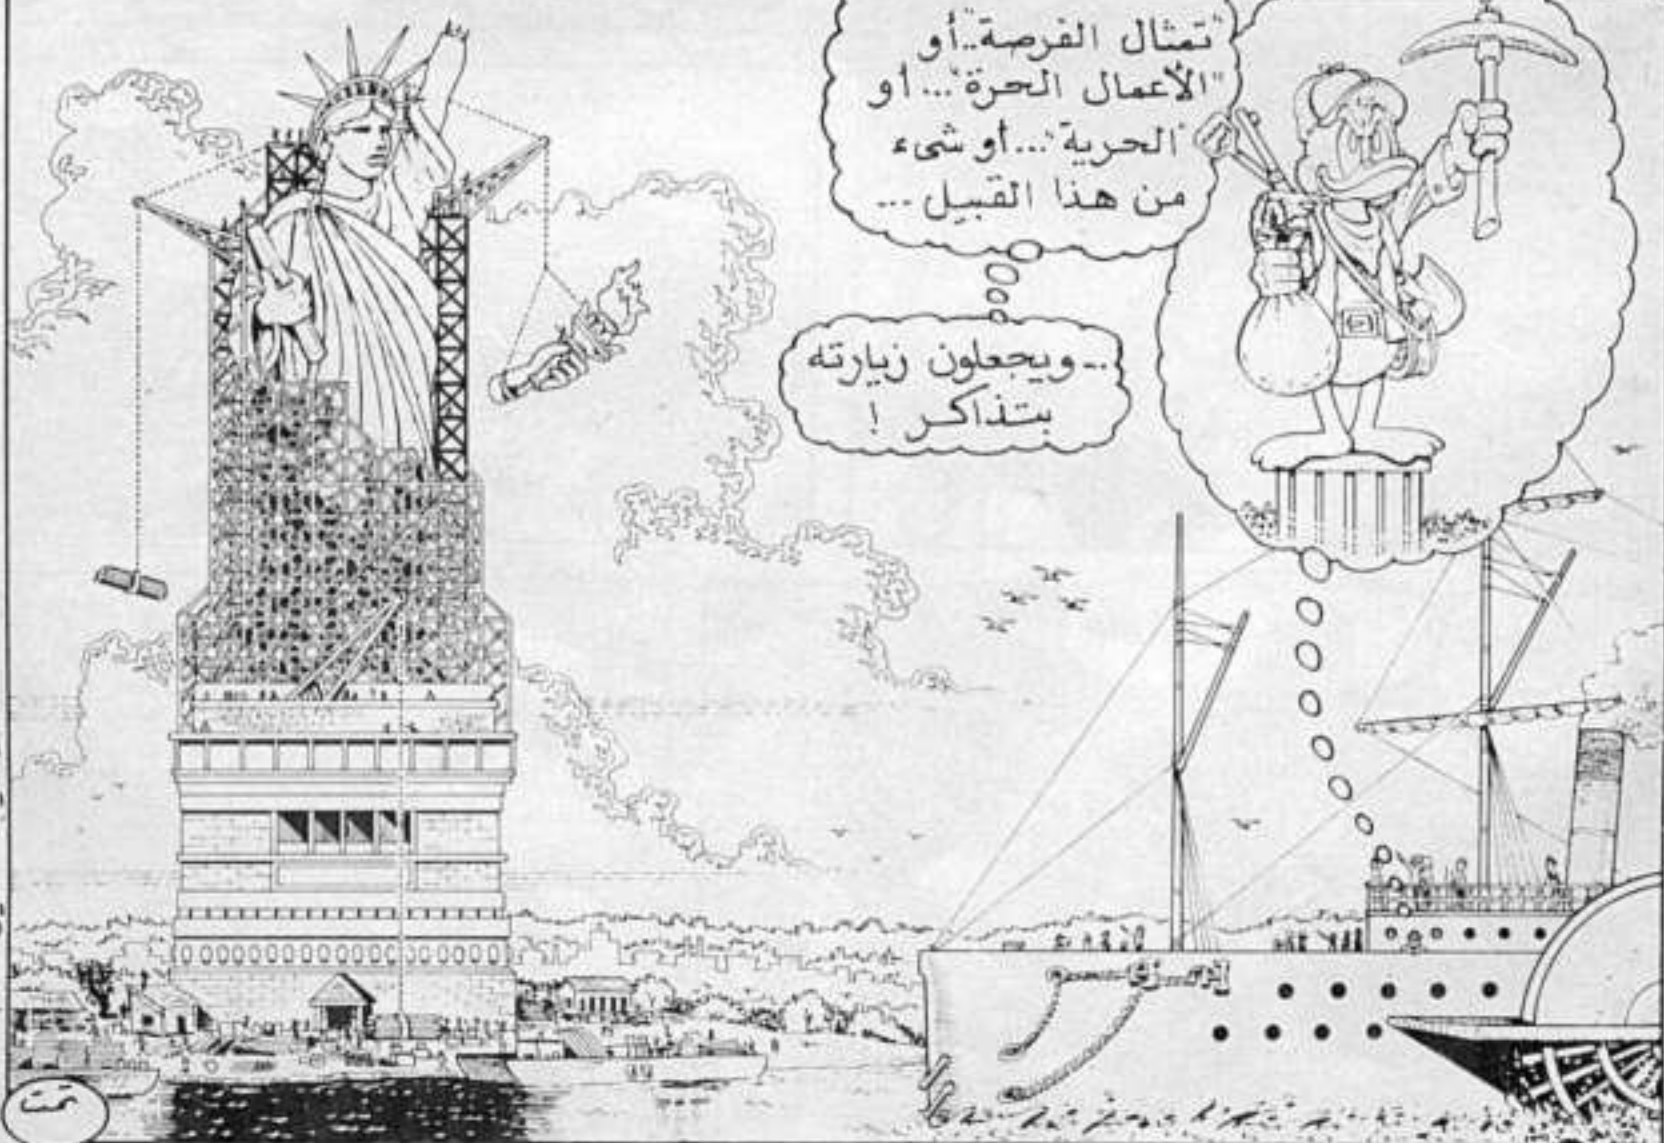 "تمثال الفرصة"..أو
"الأعمال الحرة"...أو
"الحرية"...أو شىء
من هذا القبيل...
..ويجعلون زيارته
بتذاكر !
تمت